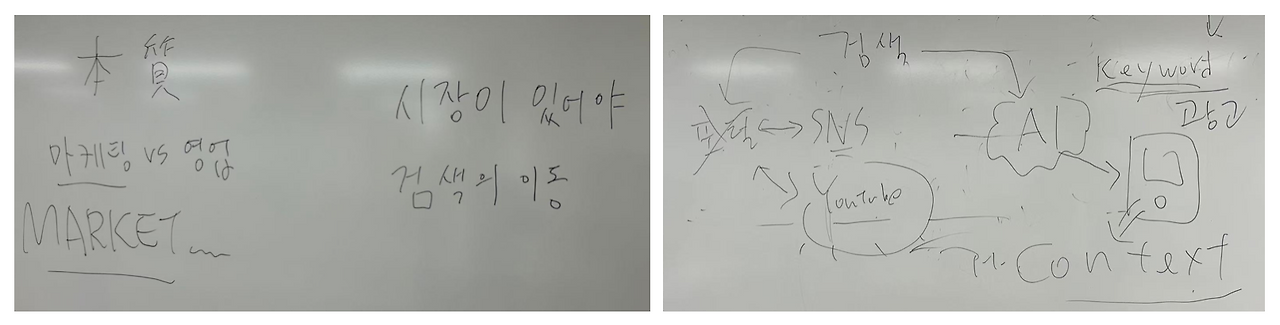 本質
마케팅 vs 영업
MARKET
시장이 있어야
검색의 이동
검색
포털 SNS
Youtube
AI
Keyword
광고
Context